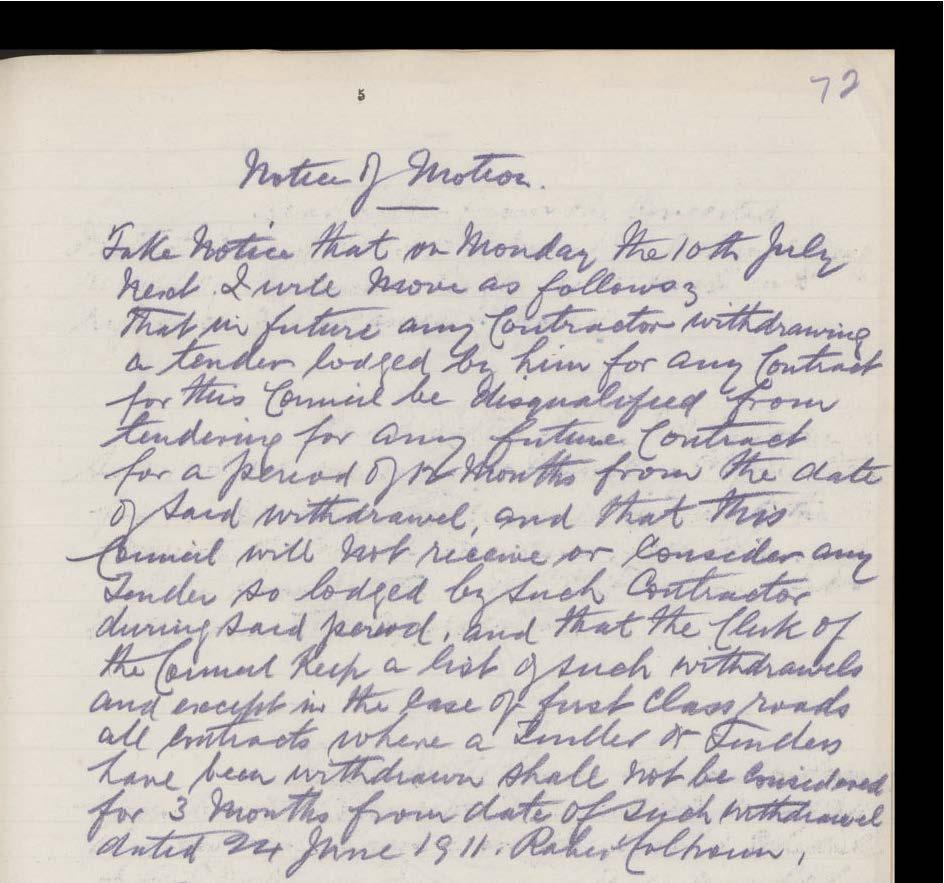 72
5
Notice of Motion.
Take Notice that on Monday the 10th July
Next I will Move as follows;
That in future any Contractor withdrawing
a tender lodged by him for any Contract
for this Council be disqualified from
tendering for any future Contract
for a period of 12 Months from the date
of Said withdrawel, and that this
Council will Not receive or Consider any
Tender so lodged by Such Contractor
during Said period, and that the Clerk of
the Council Keep a list of such withdrawels
and except in the Case of first Class roads
all Contracts where a Tender or Tenders
have been withdrawn shall Not be Considered
for 3 Months from date of Such withdrawel
dated 24 June 1911. Calhoun,